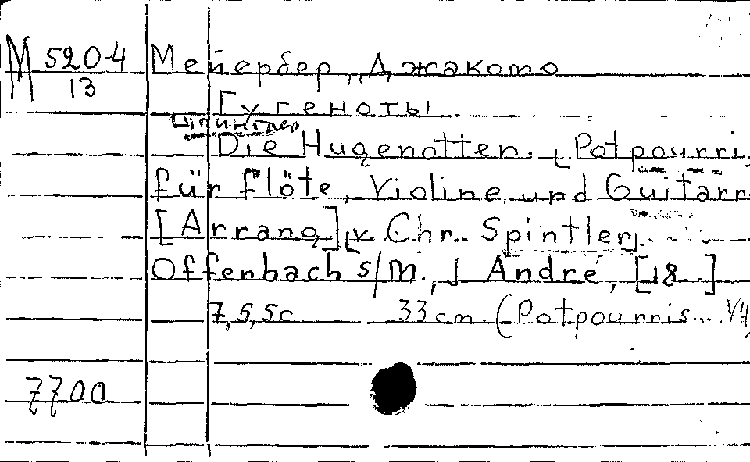 М 5204
13
Мейербер, Джакомо
Гугеноты.
Шпинтлер
Die Hugenotten. [Potpourri
für Flöte, Violine und Guitarr
[Arrang] v. Chr. Spintler].
Offenbach s/M., J André, [18 ]
7,5,5c 33 cm (Potpourris...
7700